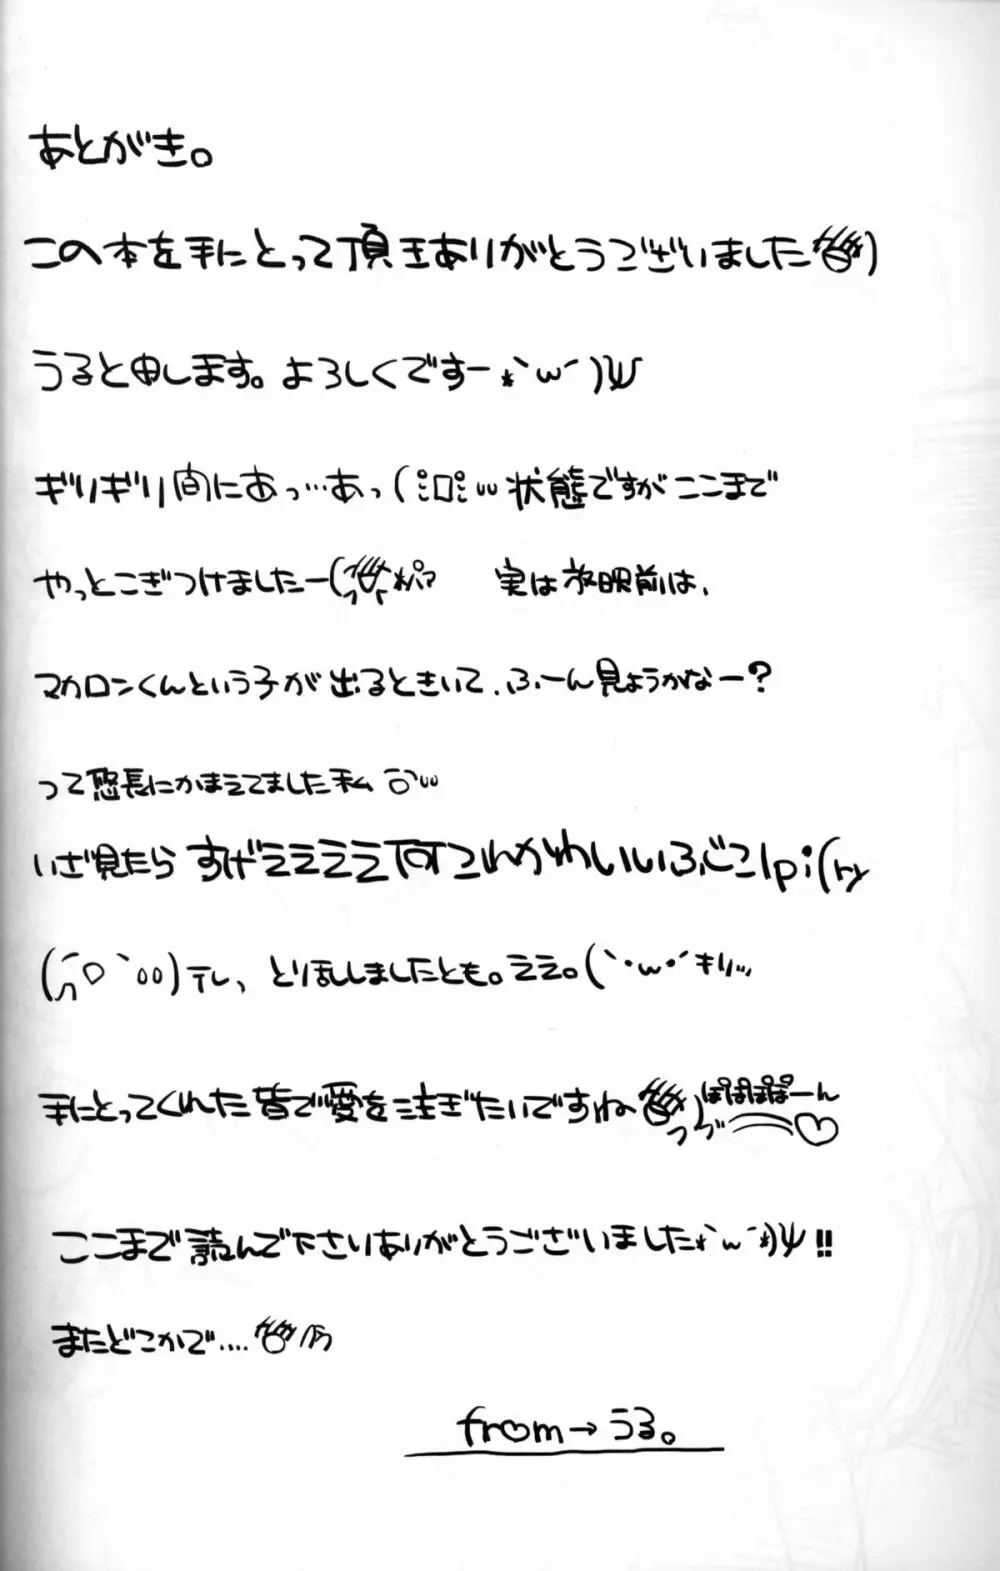 あとがき。
この本を手にとって頂きありがとうございました
うると申します。よろしくですー*`ω´)ψ
ギリギリ間にあっ…あっ( ﾟﾛﾟ 状態ですがここまで
やっとこぎつけましたー( ﾈﾊﾟｧ 実は放映前は、
マカロンくんという子が出るときいて、ふーん見ようかなー?
って悠長にかまえてました私
いざ見たら すげええええ何これかわいいいふじこlpi(ry
テレ、とり乱しましたとも。ええ。(`・ω・´ｷﾘｯ
手にとってくれた皆で愛を注ぎたいですね ぽぽぽぽーん
ここまで読んで下さりありがとうございました*`ω´*)ψ!!
またどこかで....
from→うる。